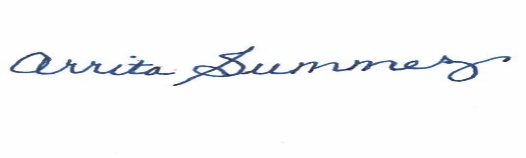 Arrita Summez